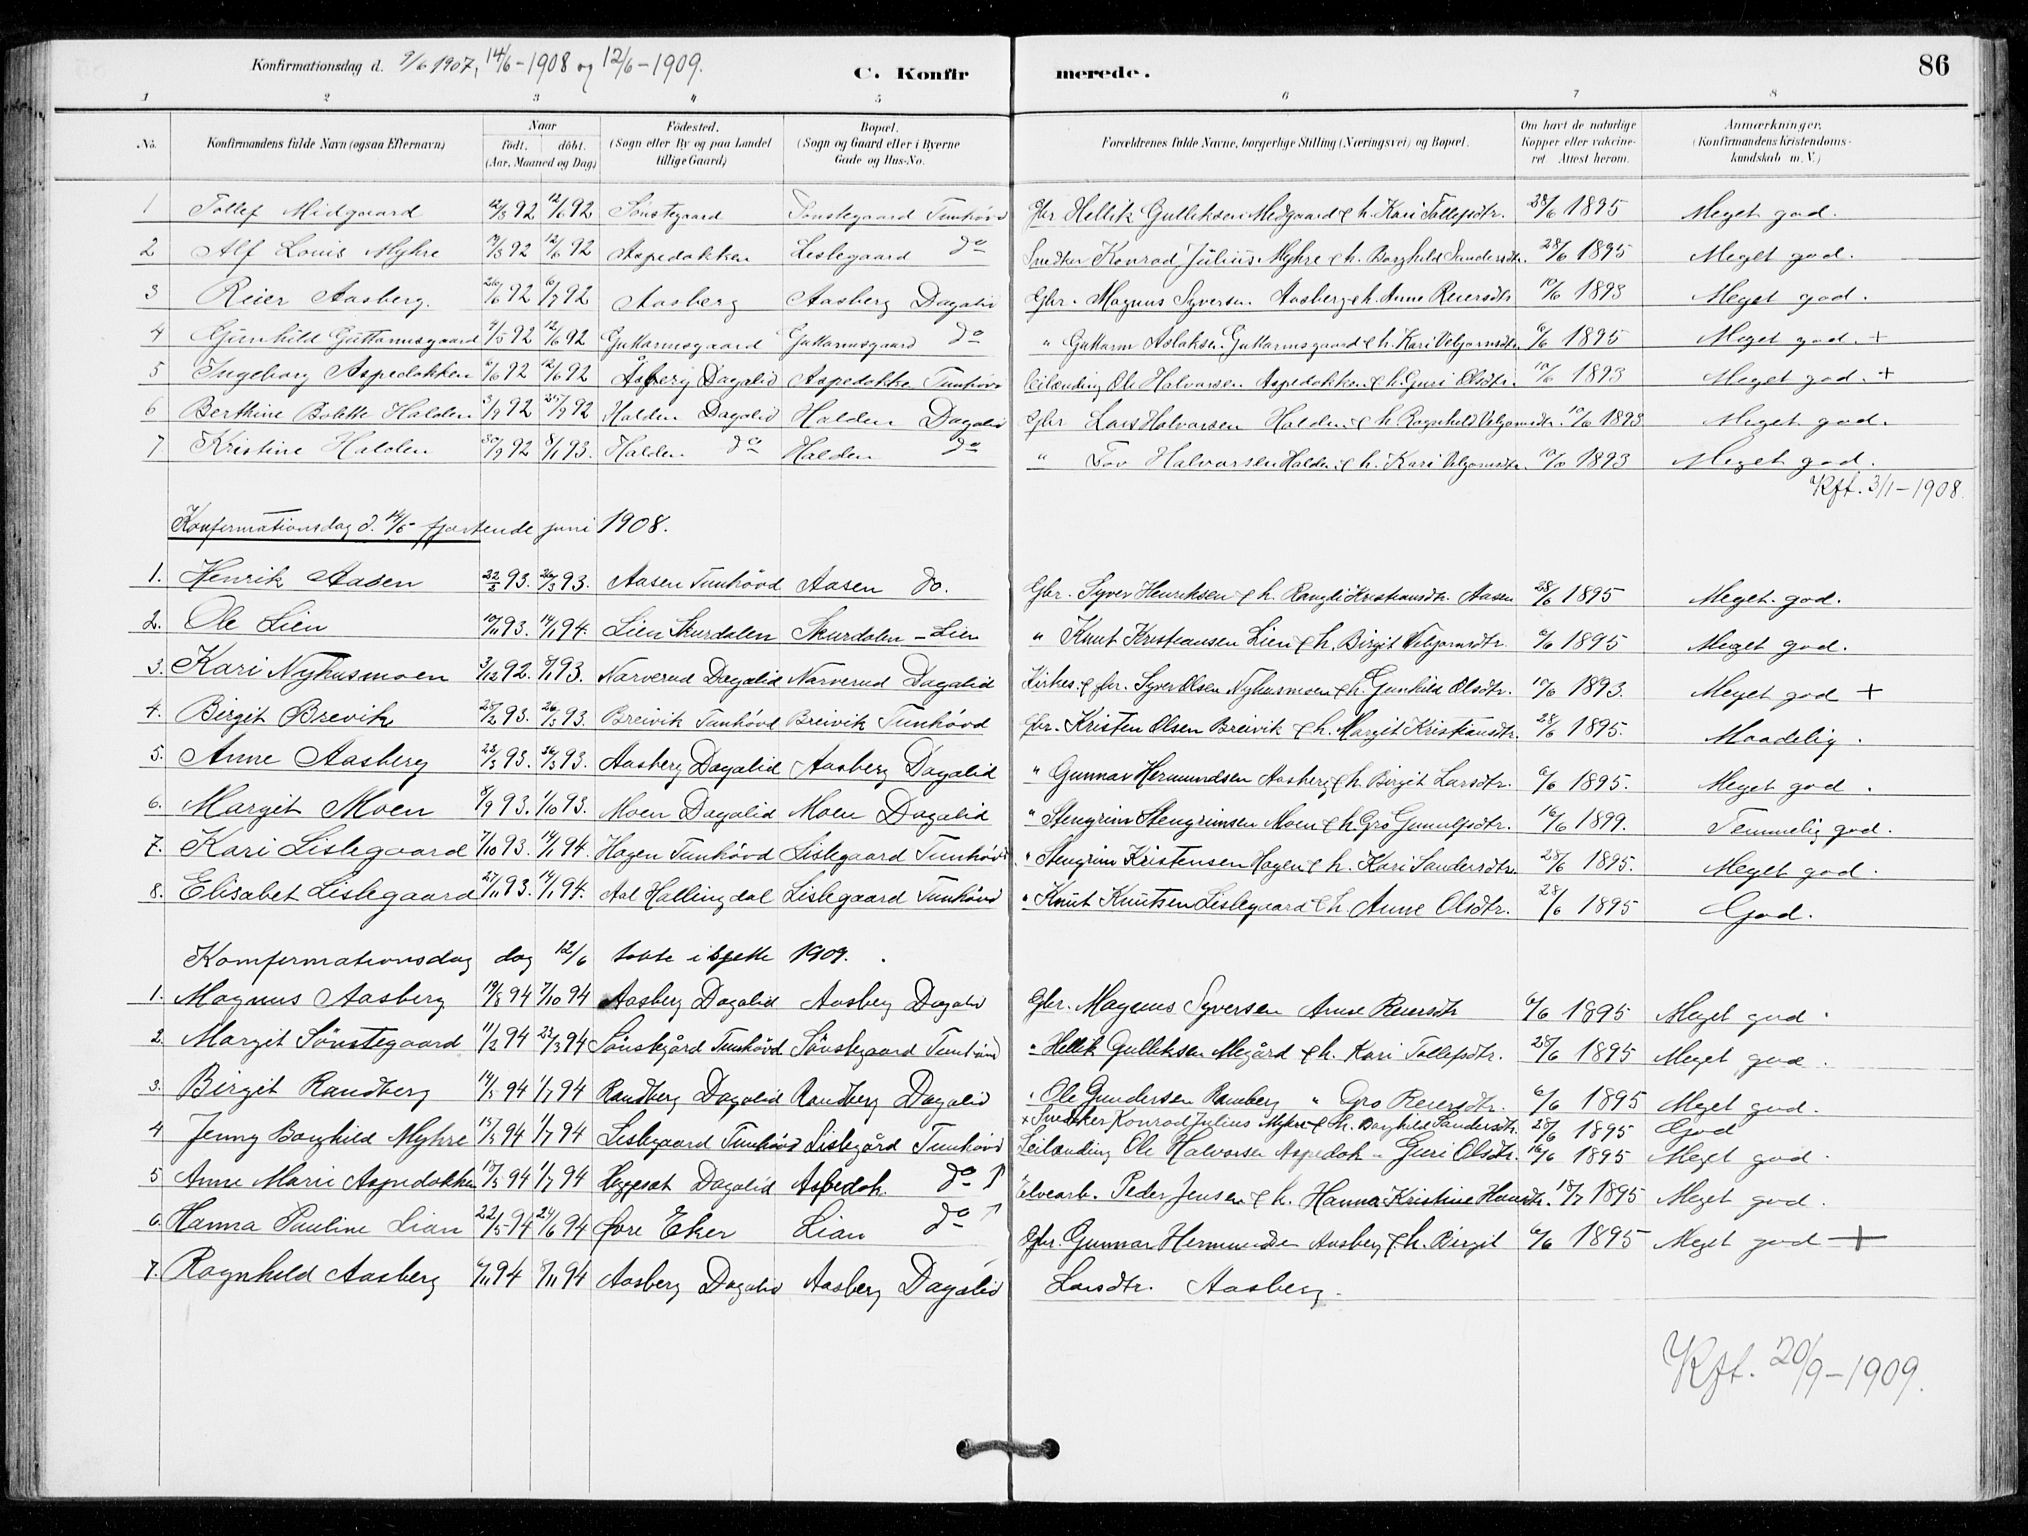 Konfirmationsdag d. 9/6 1907, 14/6-1908 og 12/6-1909.
C. Konfirmerede.
86
1 2 3 4 5 6 7 8
No. Konfirmandens fulde Navn (ogsaa Efternavn) Naar født. døbt. (Aar, Maaned og Dag) Fødested. (Sogn eller By og paa Landet tillige Gaard) Bopæl. (Sogn og Gaard eller i Byerne Gade og Hus-No. Forældrenes fulde Navne, borgerlige Stilling (Næringsvei) og Bopæl. Om havt de naturlige Kopper eller vakcineret. Attest herom. Anmærkninger. (Konfirmandens Kristendomskundskab m. V.)
1 Tollef Midgaard 12/3 92 12/6 92 Sønstegaard Sønstegaard Tunhövd Gbr Hellik Gulliksen Medgaard & h. Kari Tollefsdtr. 28/6 1895 Meget god.
2 Alf Louis Myhre 14/3 92 12/6 92 Aspedokken Leslegaard do Snedker Konrad Julius Myhre & h. Borghild Sandersdtr. 28/6 1895 Meget god.
3 Reier Aasberg. 26/6 92 6/7 92 Aasberg Aasberg Dagalid Gbr. Magnus Syversen Aasberg & h. Anne Reiersdtr 10/6 1893 Meget god.
4 Gunhild Guttormsgaard 4/5 92 12/6 92 Guttormsgaard Guttormsgaard do " Guttorm Aslaksen Guttormsgaard & h. Kari Vebjørnsdtr. 6/6 1895 Meget god. +
5 Ingeborg Aspedokken 6/6 92 12/6 92 Åsberg Dagalid Aspedokke Tunhövd Leilending Ole Halvorsen Aspedokken & h. Guri Olsdtr. 10/6 1893 Meget god. +
6 Berthine Bolette Halden 3/9 92 25/9 92 Halden Dagalid Halden Dagalid Gbr Lars Halvorsen Halden & h. Ragnhild Vebjørnsdtr. 10/6 1893 Meget god.
7 Kristine Halden 30/9 92 8/1 93. Halden do Halden do " Tov Halvorsen Halden & h. Kari Vebjørnsdtr. 10/6 1893 Meget god.
Kft. 3/1-1908.
Konfermationsdag d. 14/6 fjortende juni 1908.
1. Henrik Aasen 22/2 93. 26/3 93. Aasen Tunhövd Aasen do. Gbr. Syver Henriksen & h. Rangdi Kristiansdtr. Aasen 28/6 1895 Meget god.
2. Ole Lien 10/11 93. 14/1 94. Lien Skurdalen Skurdalen - Lien " Knut Kristiansen Lien & h. Birgit Vebjørnsdtr. 6/6 1895 Meget god.
3. Kari Nyhusmoen 3/12 92. 8/1 93. Narverud Dagalid Narverud Dagalid Kirkes. & gbr. Syver Olsen Nyhusmoen & h. Gunhild Olsdtr. 10/6 1893. Meget god +
4. Birgit Brevik 25/2 93. 26/3 93. Breivik Tunhövd Breivik Tunhövd Gbr. Kristen Olsen Breivik & h. Margit Kristiansdtr. 28/6 1895. Maadelig.
5. Anne Aasberg 23/3 93. 26/3 93. Aasberg Dagalid Aasberg Dagalid " Gunnar Hermundsen Aasberg & h. Birgit Larsdtr. 6/6 1895. Meget god.
6. Margit Moen 8/9 93. 1/10 93. Moen Dagalid Moen Dagalid " Stengrim Stengrimsen Moen & h. Gro Gunulfsdtr. 16/6 1899. Temmelig god.
7. Kari Lislegaard 7/10 93. 14/1 94. Hagen Tunhövd Lislegaard Tunhövd " Stengrim Kristensen Hagen & h. Kari Sandersdtr. 28/6 1895. Meget god.
8. Elisabet Lislegaard 27/11 93. 14/1 94. Aal Hallingdal Lislegaard Tunhövd " Knut Knutsen Lislegaard & h. Anne Olsdtr. 28/6 1895 God.
Komfermationsdag dag 12/6 1909.
1. Magnus Aasberg 19/8 94 7/10 94 Aasberg Dagalid Aasberg Dagalid Gbr. Magnus Syversen Anne Reiersdtr 6/6 1895 Meget god.
2. Margit Sönstegaard 11/2 94 23/3 94 Sönstegård Tunhövd Sönstegaard Tunhövd " Hellik Gulliksen Megård & h. Kari Tollefsdtr. 28/6 1895 Meget god.
3. Birgit Randberg 14/5 94 1/7 94 Randberg Dagalid Randberg Dagalid " Ole Gundersen Ramberg " Gro Reiersdtr. 6/6 1895 Meget god.
4 Jenny Borghild Myhre 15/5 94 1/7 94 Lislegaard Tunhövd Lislegård Tunhövd + Snedker Konrad Julius Myhre & h. Borghild Sandersdtr. 28/6 1895 God
5 Anne Marie Aspedokken 18/5 94 1/7 94 Heggeset Dagalid Aspedok. do Leilending Ole Halvorsen Aspedok " Guri Olsdtr. 16/6 1895 Meget god.
6. Hanna Pauline Lian 22/5 94 24/6 94 Øvre Eker Lian do Elvearb. Peder Jensen & h. Hanna Kristine 18/7 1895 Meget god.
7. Ragnhild Aasberg 6/11 94 8/11 94 Aasberg Dagalid Aasberg Dagalid Gbr. Gunnar Hermundsen Aasberg & h. Birgit 6/6 1895 Meget god +
Larsdtr. Aasberg.
Kft. 20/9-1909.